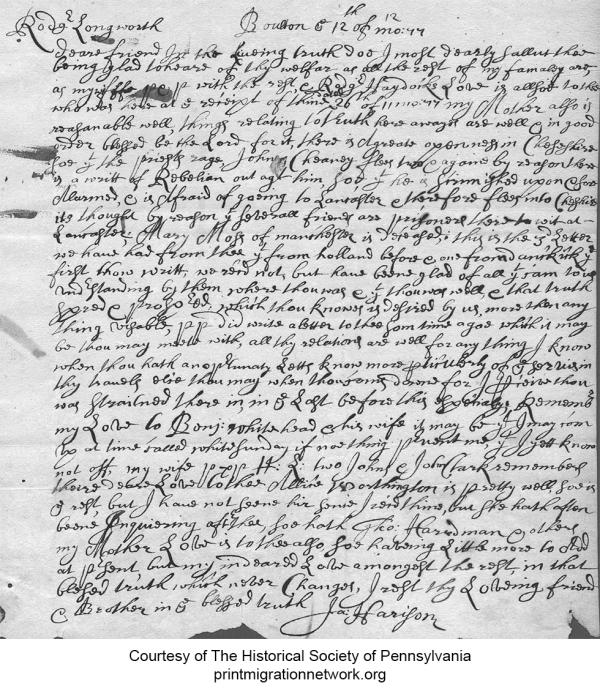 Rodgr Longworth Boulton ye 12th of 12 mo: 77
deare friend In the liveing truth doe I most dearly sallut thee
being glad to heare of thy welfar as all the rest of my famaley are
as my wife with the rest, Rodgr Haydocke Love is allsoe to thee
who was here at ye receipt of thine 26 of 11 mo: 77 my Mother also is
reasanable well, things relating to truth here awayes are well & in good
order blessed be the Lord for it, there is a greate openness in Cheshshire
soe yt the priests rage, John Cheaney flees two & agane by reason there
is a writt of Rebelian out agt him soe yt he is upon & soe
Allarmed, & is afraid of goeing to Lancaster & therefore flees into Cheshire
its thought by reason yt severall friends are prisoners there to wit at
Lancaster; Mary Moss of manchester is desesed; this is the 3d Letter
we have had from thee yt from holland before & one from yt
first thow writt, we recd not, but have beene glad of all yt cam to us
understanding by them where thou was & yt thou was well, & that truth
spred & prospered, which thou knowes is desired by us more then any
thing visable, PP did write a letter to thee som time agoe which it may
be thou may meete with, all thy relations are well for any thing I know
when thou hath an oppertunaty Letts know more perticulerly of ye servis in
thy travels else thou may when thou comes downe for I perceive thou
was straitned there in in ye Last before this espetialy, Remembr
my Love to Benj: Whitehead & his wife it may be yt I may com
up at time called whitsunday if noe thing prevent me yt I yett know
not off; my wife PP H: L: two Johns & John Clark remembers
there deare Love to thee Allice Worthington is pretty well, soe is
ye rest, but I have not seene hir sence I recd thine, but she hath often
beene Inquiering after thee, soe hath Tho: Harrdman & others
my Mother Love is to thee also soe haveing Little more to Add
at present but my indeared Love amongst the rest, in that
blessed truth which never Changes, I rest thy Loveing friend
& Brother in ye blessed truth Ja: Harison
Courtesy of The Historical Society of Pennsylvania
printmigrationnetwork.org